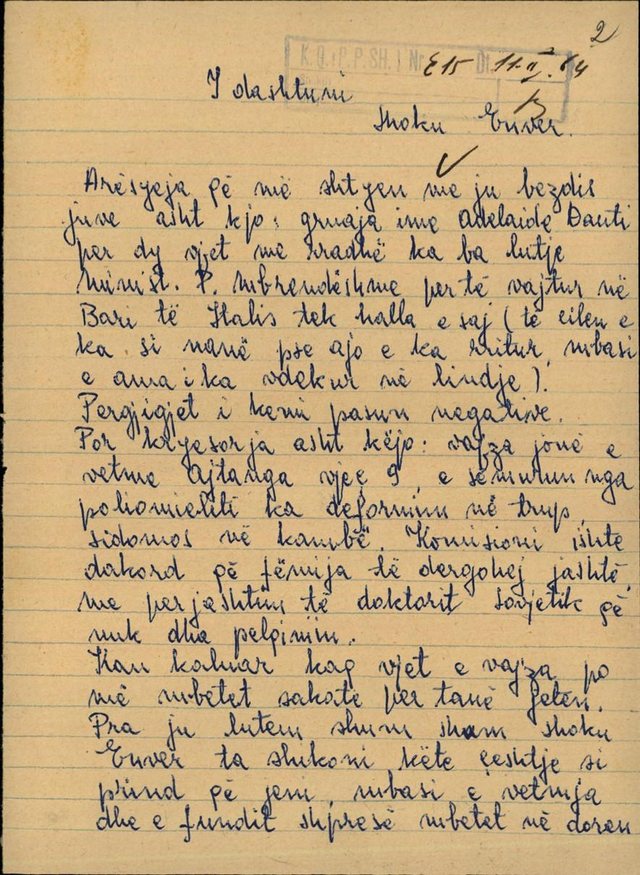 2
K.Q. i P.P.SH. Nr. E15 Dt. 11.II.64
I dashtuni
shoku Enver.
Arësyeja çë më shtyen me ju bezdis
juve asht kjo: gruaja ime Adelaide Dauti
per dy vjet me rradhë ka ba lutje
Minist. P. mbrendëshme per të vajtur në
Bari të Italis tek halla e saj (të cilen e
ka si nanë pse ajo e ka rritur, mbasi
e ama i ka vdekur në lindje).
Pergjigjet i kemi pasun negative.
Por kryesorja asht këjo: vajza jonë e
vetme Ajtanga vjeç 9, e sëmurun nga
poliomieliti ka deformim në trup,
sidomos në kambë. Komisioni ishte
dakord çë fëmija të dergohej jashtë,
me perjashtim të doktorit sovjetik çë
nuk dha pelqimin.
Kan kaluar kaq vjet e vajza po
më mbetet sakate per tanë jeten.
Pra ju lutem shum shum shoku
Enver ta shikoni këte çeshtje si
prind çë jeni, mbasi e vetmja
dhe e fundit shpresë mbetet në doren